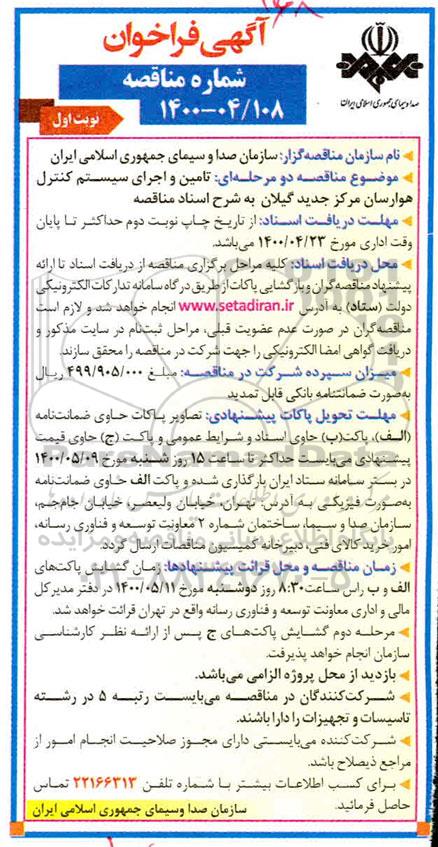 آگهی فراخوان
شماره مناقصه
۱۴۰۰-۰۴/۱۰۸
نوبت اول
صدا و سیمای جمهوری اسلامی ایران
نام سازمان مناقصه‌گزار: سازمان صدا و سیمای جمهوری اسلامی ایران
موضوع مناقصه دو مرحله‌ای: تامین و اجرای سیستم کنترل
هوارسان مرکز جدید گیلان به شرح اسناد مناقصه
مهلت دریافت اسناد: از تاریخ چاپ نوبت دوم حداکثر تا پایان
وقت اداری مورخ ۱۴۰۰/۰۴/۲۳ می‌باشد.
محل دریافت اسناد: کلیه مراحل برگزاری مناقصه از دریافت اسناد تا ارائه
پیشنهاد مناقصه‌گران و بازگشایی پاکات از طریق درگاه سامانه تدارکات الکترونیکی
دولت (ستاد) به آدرس www.setadiran.ir انجام خواهد شد و لازم است
مناقصه‌گران در صورت عدم عضویت قبلی، مراحل ثبت‌نام در سایت مذکور و
دریافت گواهی امضا الکترونیکی را جهت شرکت در مناقصه را محقق سازند.
میزان سپرده شرکت در مناقصه: مبلغ ۴۹۹/۹۰۵/۰۰۰ ریال
به‌صورت ضمانتنامه بانکی قابل تمدید
مهلت تحویل پاکات پیشنهادی: تصاویر پاکات حاوی ضمانت‌نامه
(الف)، پاکت(ب) حاوی اسناد و شرایط عمومی و پاکت (ج) حاوی قیمت
پیشنهادی می‌بایست حداکثر تا ساعت ۱۵ روز شنبه مورخ ۱۴۰۰/۰۵/۰۹
در بستر سامانه ستاد ایران بارگذاری شده و پاکت الف حاوی ضمانت‌نامه
به‌صورت فیزیکی به‌آدرس: تهران، خیابان ولیعصر، خیابان جام‌جم،
سازمان صدا و سیما، ساختمان شماره ۲ معاونت توسعه و فناوری رسانه،
امور خرید کالای فنی، دبیرخانه کمیسیون مناقصات ارسال گردد.
زمان مناقصه و محل قرائت پیشنهادها: زمان گشایش پاکت‌های
الف و ب راس ساعت ۸:۳۰ روز دوشنبه مورخ ۱۴۰۰/۰۵/۱۱ در دفتر مدیر کل
مالی و اداری معاونت توسعه و فناوری رسانه واقع در تهران قرائت خواهد شد.
مرحله دوم گشایش پاکت‌های ج پس از ارائه نظر کارشناسی
سازمان انجام خواهد پذیرفت.
بازدید از محل پروژه الزامی می‌باشد.
شرکت‌کنندگان در مناقصه می‌بایست رتبه ۵ در رشته
تاسیسات و تجهیزات را دارا باشند.
شرکت‌کننده می‌بایستی دارای مجوز صلاحیت انجام امور از
مراجع ذیصلاح باشد.
برای کسب اطلاعات بیشتر با شماره تلفن ۲۲۱۶۶۳۱۳ تماس
حاصل فرمائید.
سازمان صدا وسیمای جمهوری اسلامی ایران